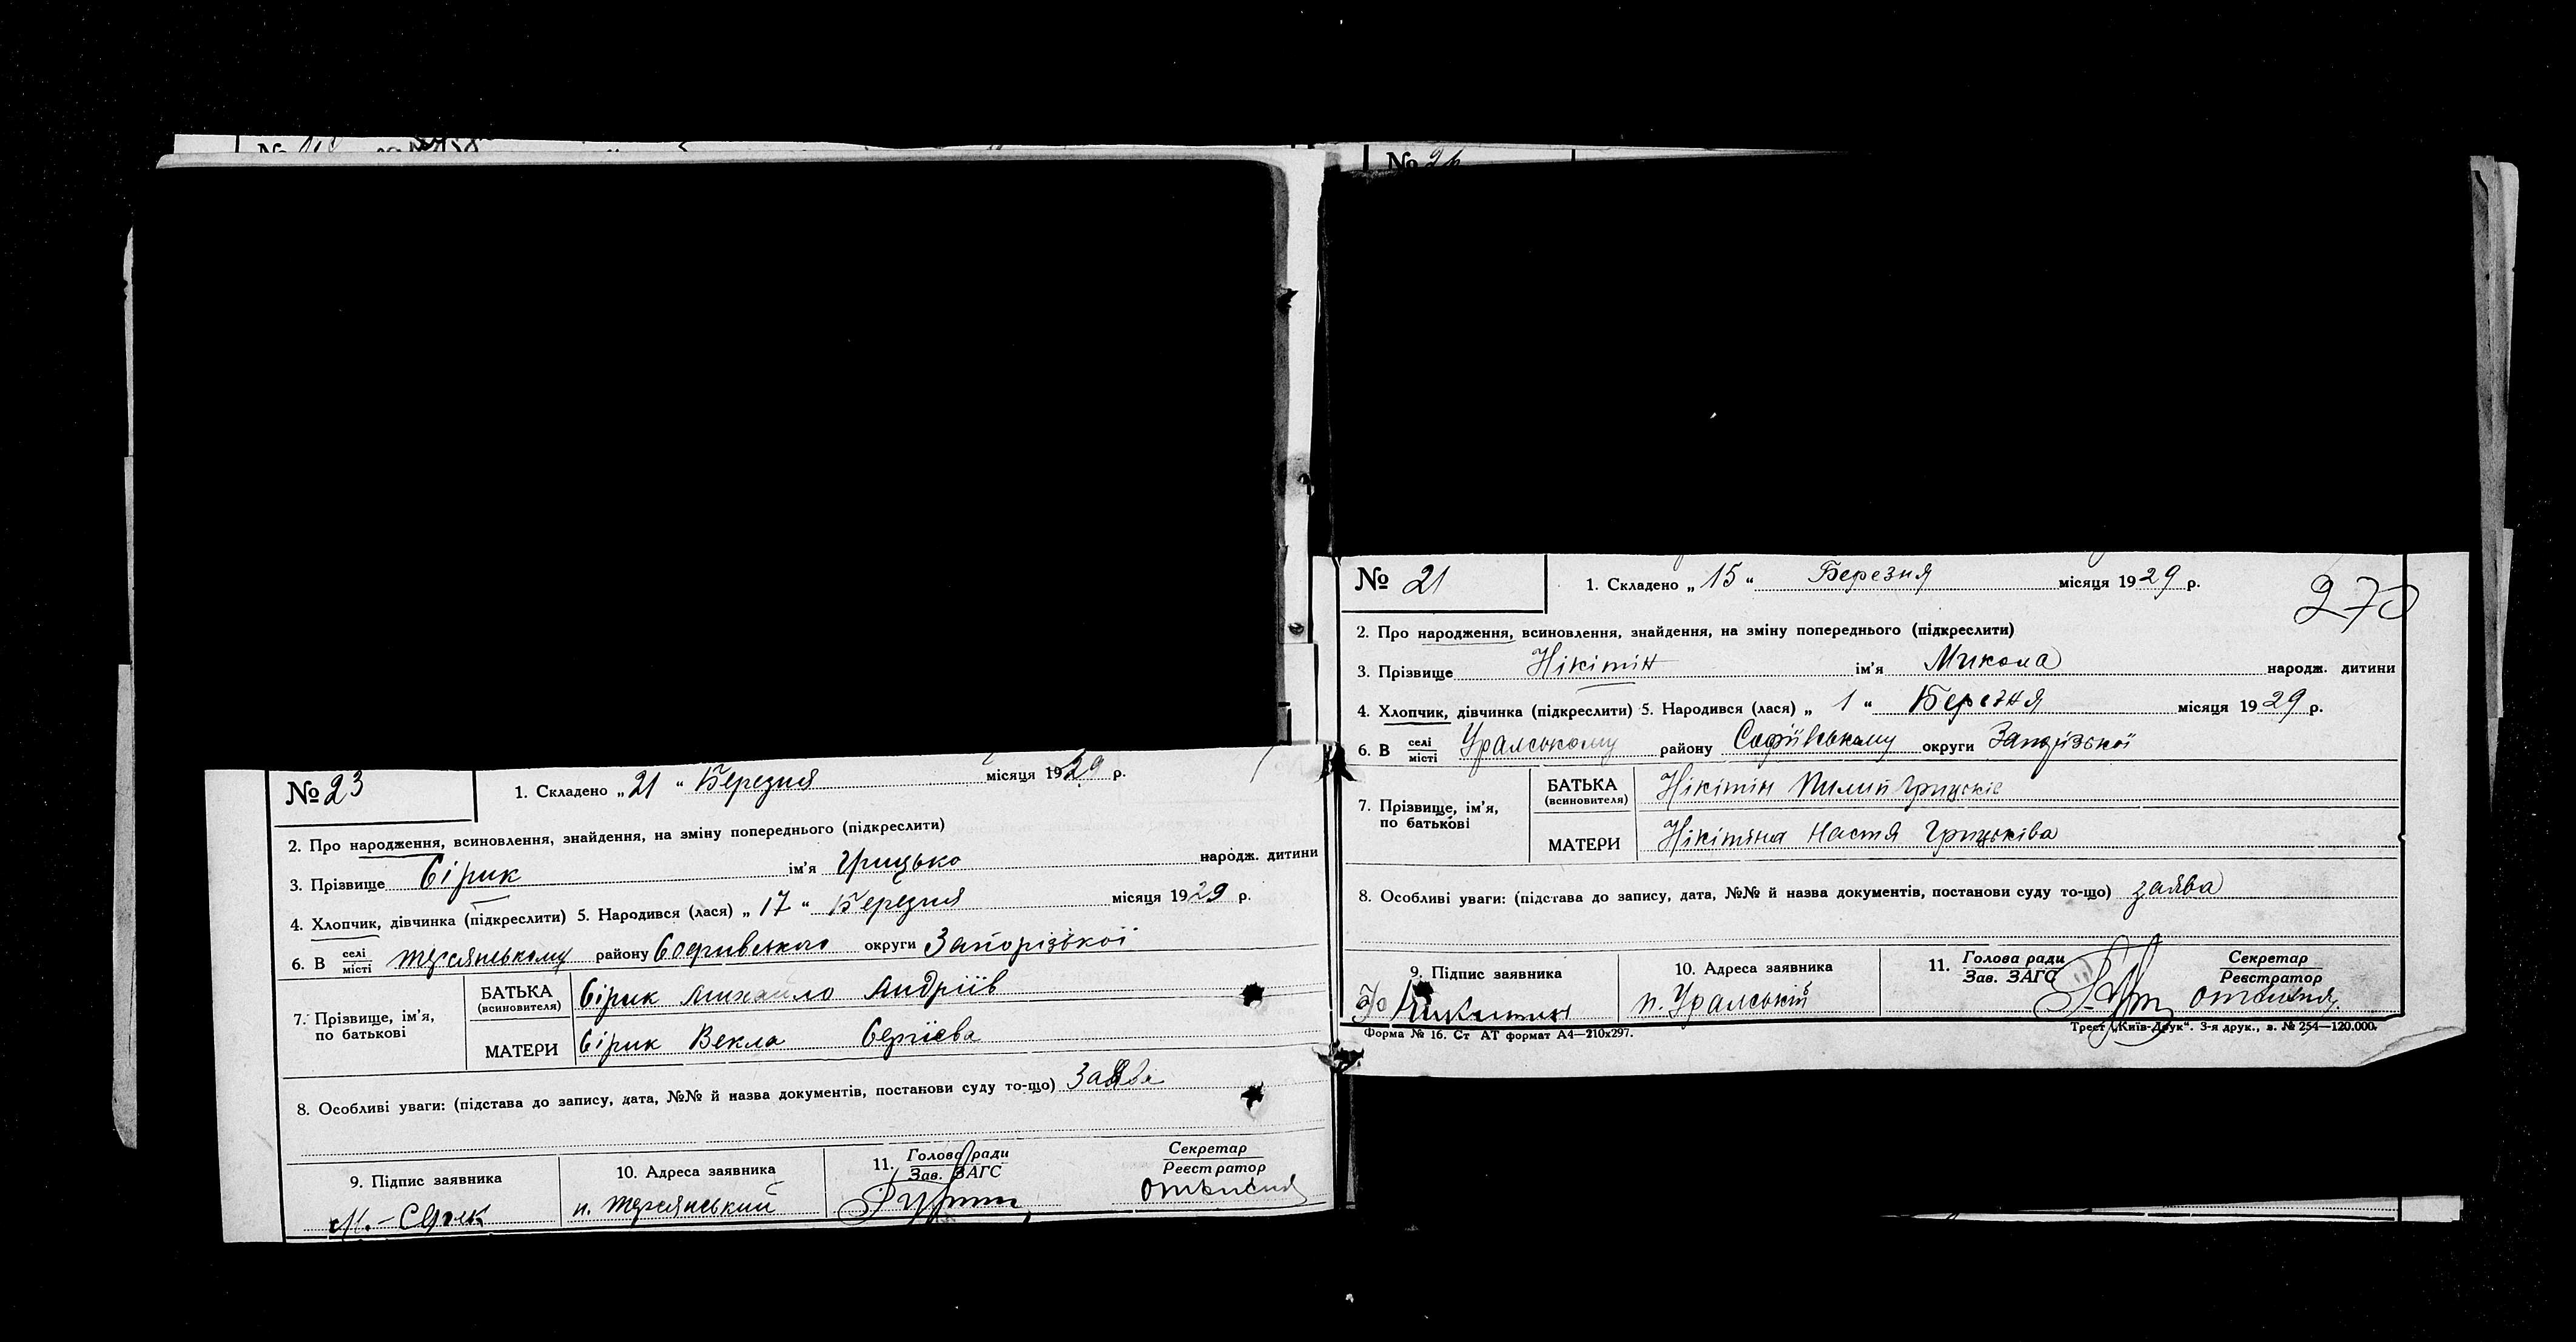 № 23
1. Складено „ 21 “ Березня місяця 1929 р.
2. Про народження, всиновлення, знайдення, на зміну попереднього (підкреслити)
3. Прізвище Сірик ім'я Грицько народж. дитини
4. Хлопчик, дівчинка (підкреслити) 5. Народився (лася) „ 17 “ Березня місяця 1929 р.
6. В селі місті району Софиевського округи Запорізької
7. Прізвище, ім'я, по батькові
БАТЬКА (всиновителя) Сірик Михайло Андріїв
МАТЕРИ Сірик Векла Сергієва
8. Особливі уваги: (підстава до запису, дата, №№ й назва документів, постанови суду то-що) Заява
9. Підпис заявника
10. Адреса заявника
11. Голова ради Зав. ЗАГС
Секретар Реєстратор
№ 26
№ 21
1. Складено „ 15 “ Березня місяця 1929 р.
278
2. Про народження, всиновлення, знайдення, на зміну попереднього (підкреслити)
3. Прізвище Нікітін ім'я Микола народж. дитини
4. Хлопчик, дівчинка (підкреслити) 5. Народився (лася) „ 1 “ Березня місяця 1929 р.
6. В селі місті Уралському району Софіївському округи Запорізької
7. Прізвище, ім'я, по батькові
БАТЬКА (всиновителя) Нікітін Пилип Грицьків
МАТЕРИ Нікітіна Настя Грицьківа
8. Особливі уваги: (підстава до запису, дата, №№ й назва документів, постанови суду то-що) заява
9. Підпис заявника
10. Адреса заявника
11. Голова ради Зав. ЗАГС
Секретар Реєстратор
Никитин п. Уралський
Форма № 16. Ст АТ формат А4—210х297.
Трест „Київ-Друк“. 3-я друк., в. № 254—120.000.